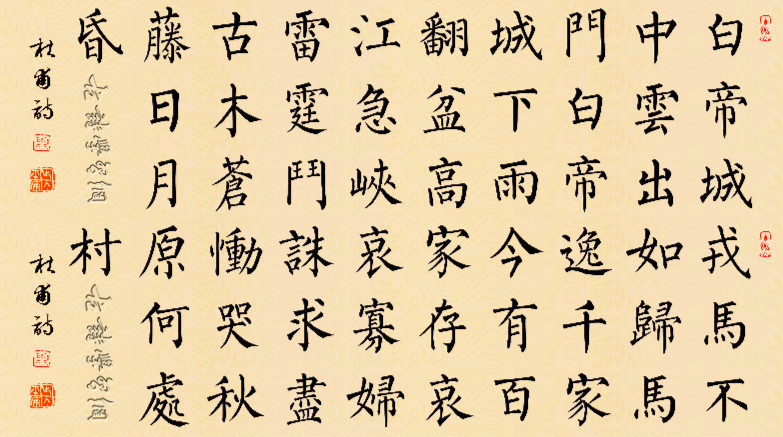 白帝城
中雲出
門白帝
城下雨
翻盆高
江急峽
雷霆鬥
古木蒼
藤日月
昏
杜甫詩
戎馬不
如歸馬
逸千家
今有百
家存哀
哀寡婦
誅求盡
慟哭秋
原何處
村
杜甫詩